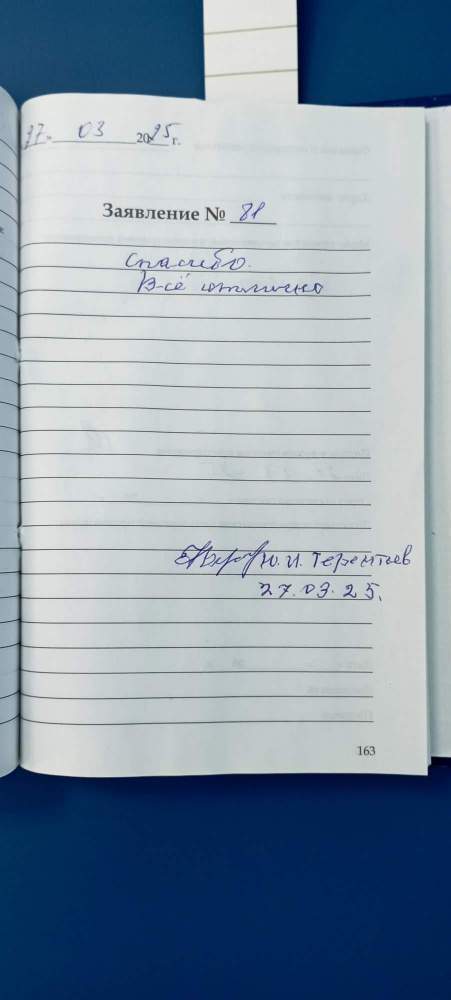 27. 03 2025 г.
Заявление № 81
Спасибо.
Всё отлично
Ю. И. Терентьев
27.03.25.
163